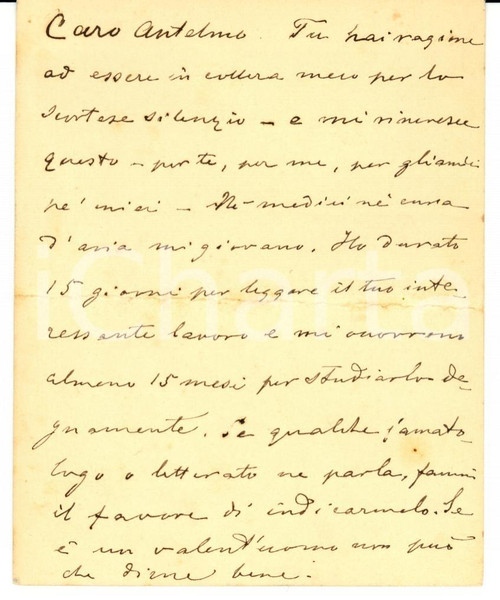 Caro Antelmo. Tu hai ragione
ad essere in collera meco per lo
scortese silenzio – e mi rincresce
questo – per te, per me, per gli amici
pe' miei – Nè medici nè cura
d'aria mi giovano. Ho durato
15 giorni per leggere il tuo inte-
ressante lavoro e mi occorrono
almeno 15 mesi per studiarlo de-
gnamente. Se qualche
logo o letterato ne parla, fammi
il favore di indicarmelo. Se
è un valent'uomo non può
che dirne bene.
iCharta